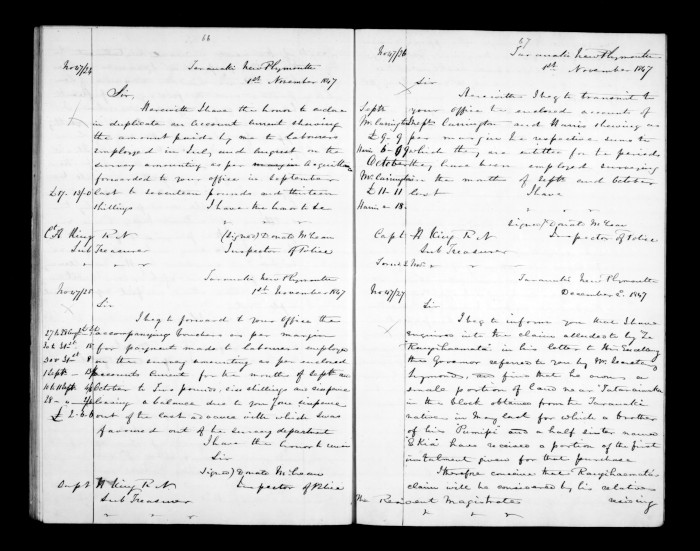 66
No 47/24 Taranaki New Plymouth
1st November 1847
Sir,
Herewith I have the honor to enclose
in duplicate an account current shewing
the amount paid by me to labourers
employed in July and August on the
survey amounting as per
forwarded to your office in September
£17. 13/0 last to seventeen pounds and thirteen
shillings I have the honor to be
Ct H King R N (Signed) Donald McLean
Sub Treasurer Inspector of Police
Taranaki New Plymouth
No 47/25 1st November 1847
Sir
I beg to forward to your Office the
accompanying vouchers as per margin
for payment made to labourers employed
on the survey amounting as per enclosed
account current for the months of Septr and
October to Two pounds six shillings and sixpence
leaving a balance due to you
£ 2-6-6 out of the last advance with which I was
favoured out of the survey department
I have the honor to remain
Sir
(Signed) Donald McLean
Capt H King R N Inspector of Police
Sub Treasurer
67
No 47/26 Taranaki New Plymouth
1st November 1847
Sir
Herewith I beg to transmit to
Septr your office the enclosed accounts of
Mr Carrington Messrs Carrington and Harris shewing as
£ 9. 9 per margin the respective sums to
Harris 6- which they are entitled for the periods
October they have been employed surveying
Mr Carrington in the months of Septr and October
£ 11- 11 last I have
Harris 2 18
(Signed) Donald McLean
Capt H King R N Inspector of Police
Sub Treasurer
Taranaki New Plymouth
No 47/27 December 2. 1847
Sir
I beg to inform you that I have
enquired into the claim alluded to by Te
Rangihaeata in his letter to His Excellency
the Governor referred to you by Mr Secretary
Symonds, and find that he owns a
small portion of land near Tataraimaka
in the block obtained from the Taranaki
natives in May last for which a brother
of his Pumipi and a half sister named
have received a portion of the first
instalment given for that purchase
I therefore conceive that Rangihaeata's
claim will be considered by his relatives
The Resident Magistrate residing